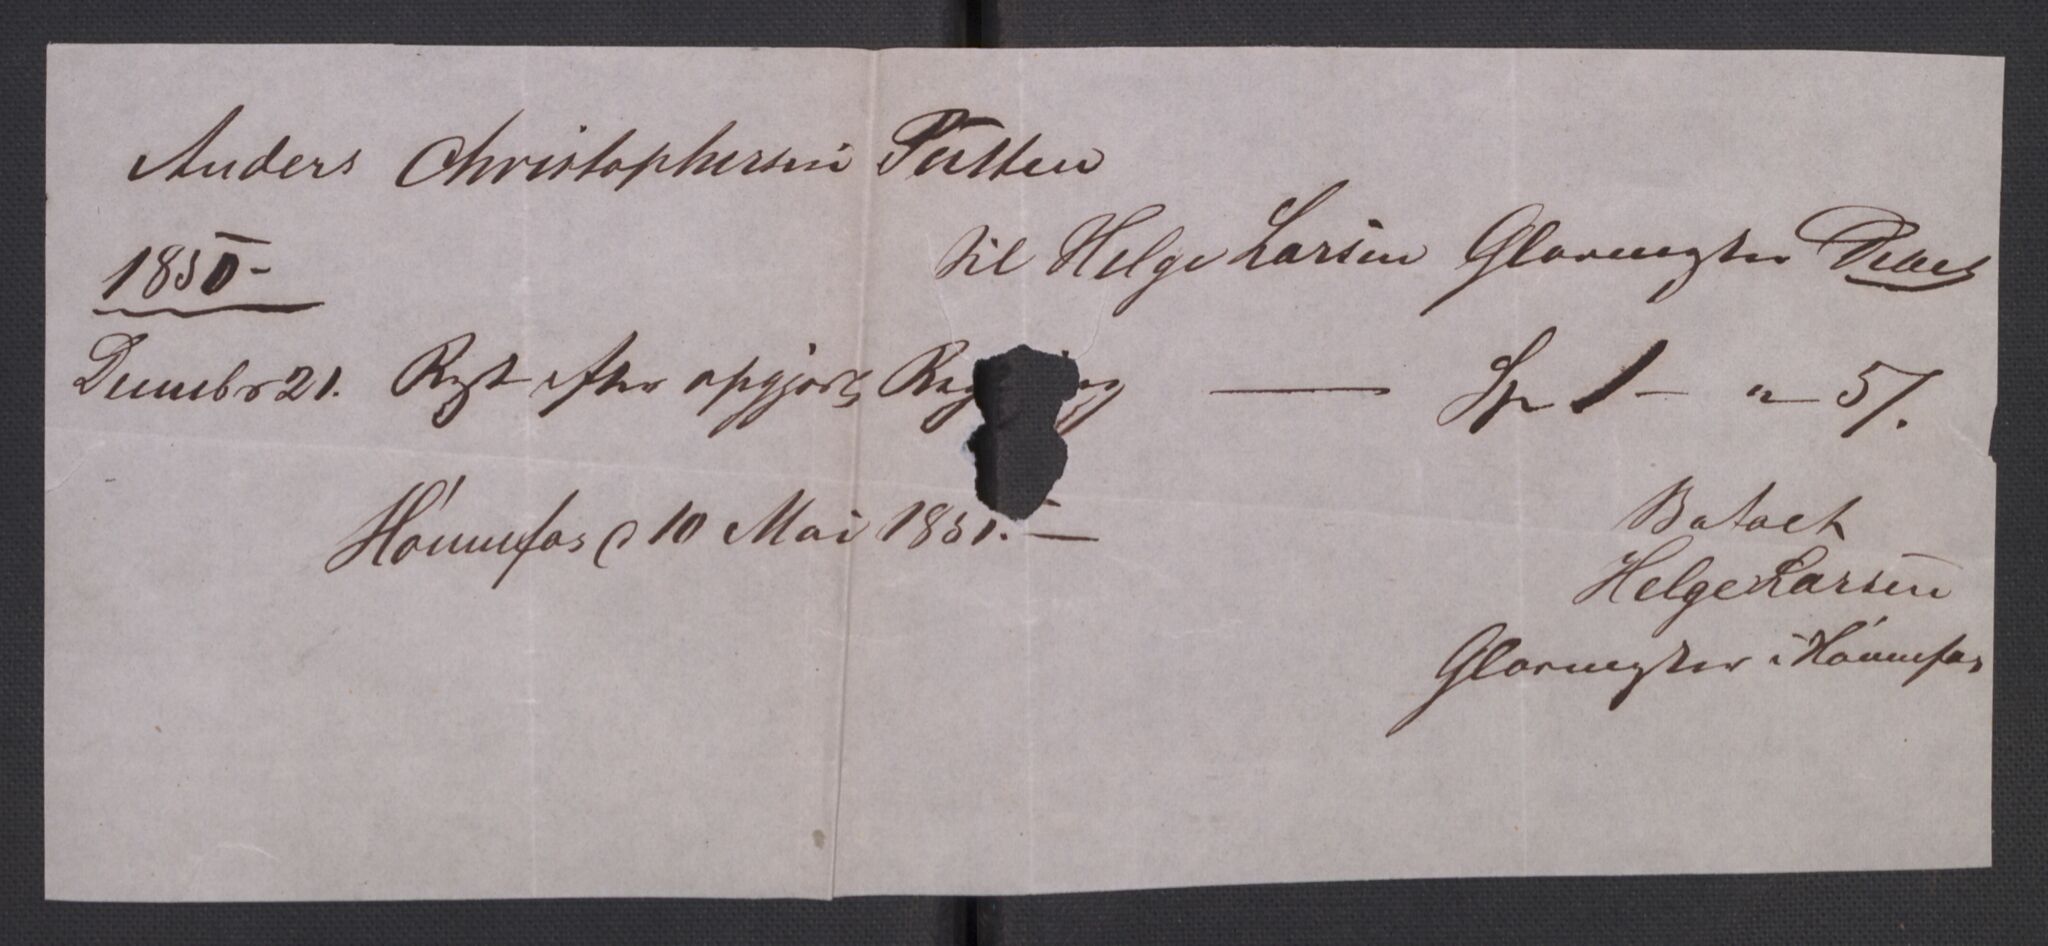 Anders Christophersen Tutten
1850
til Helge Larsen Glarmester Debet
Decembr 21. Rest efter opgjort Reg ng — Sp 1 — " — 57.
Hönnefos d 10 Mai 1851. —
Betalt
Helge Larsen
Glarmester i Hönnefos